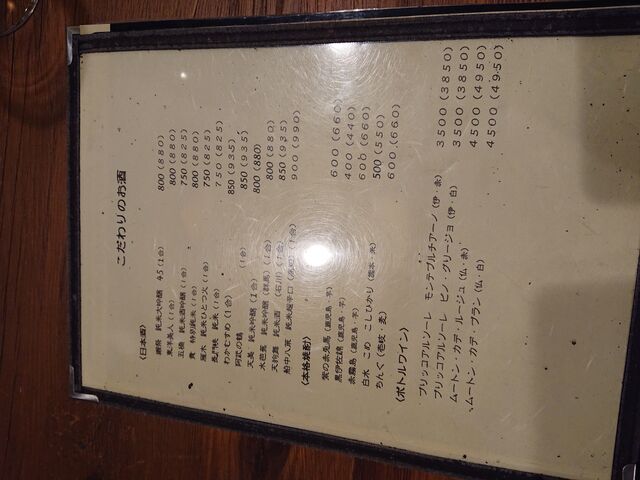 こだわりのお酒
〈日本酒〉
獺祭 純米大吟醸 45(1合) 800(880)
東洋美人(1合) 800(880)
五橋 純米酒吟醸(1合) 750(825)
貴 特別純米(1合) 800(880)
雁木 純米ひとつ火(1合) 750(825)
長門峡 純米(1合) 750(825)
わかむすめ(1合) 850(935)
阿武の鶴 (1合) 850(935)
天美 純米吟醸(1合) 800(880)
水芭蕉 純米吟醸(群馬)(1合) 800(880)
天狗舞 純米酒 (石川)(1合) 850(935)
船中八策 純米超辛口(高知)(1合) 900(990)
〈本格焼酎〉
紫の赤兎馬(鹿児島・芋) 600(660)
黒伊佐錦(鹿児島・芋) 400(440)
赤霧島(鹿児島・芋) 600(660)
白水 こめ こしひかり(熊本・米) 500(550)
ちんぐ(壱岐・麦) 600(660)
〈ボトルワイン〉
ブリッコアルソーレ モンテプルチアーノ(伊・赤) 3500(3850)
ブリッコアルソーレ ピノ・グリージョ(伊・白) 3500(3850)
ムートン・カデ・ルージュ(仏・赤) 4500(4950)
ムートン・カデ・ブラン(仏・白) 4500(4950)